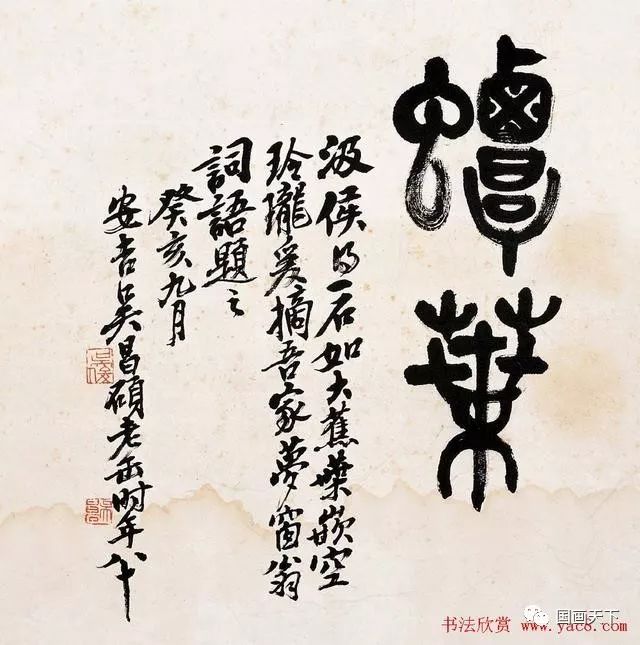 蟫葉
汲侯得一石如大蕉葉嵌空
玲瓏爰摘吾家夢窗翁
詞語題之
癸亥九月
安吉吳昌碩老缶時年八十
国画天下
书法欣赏 www.yac8.com